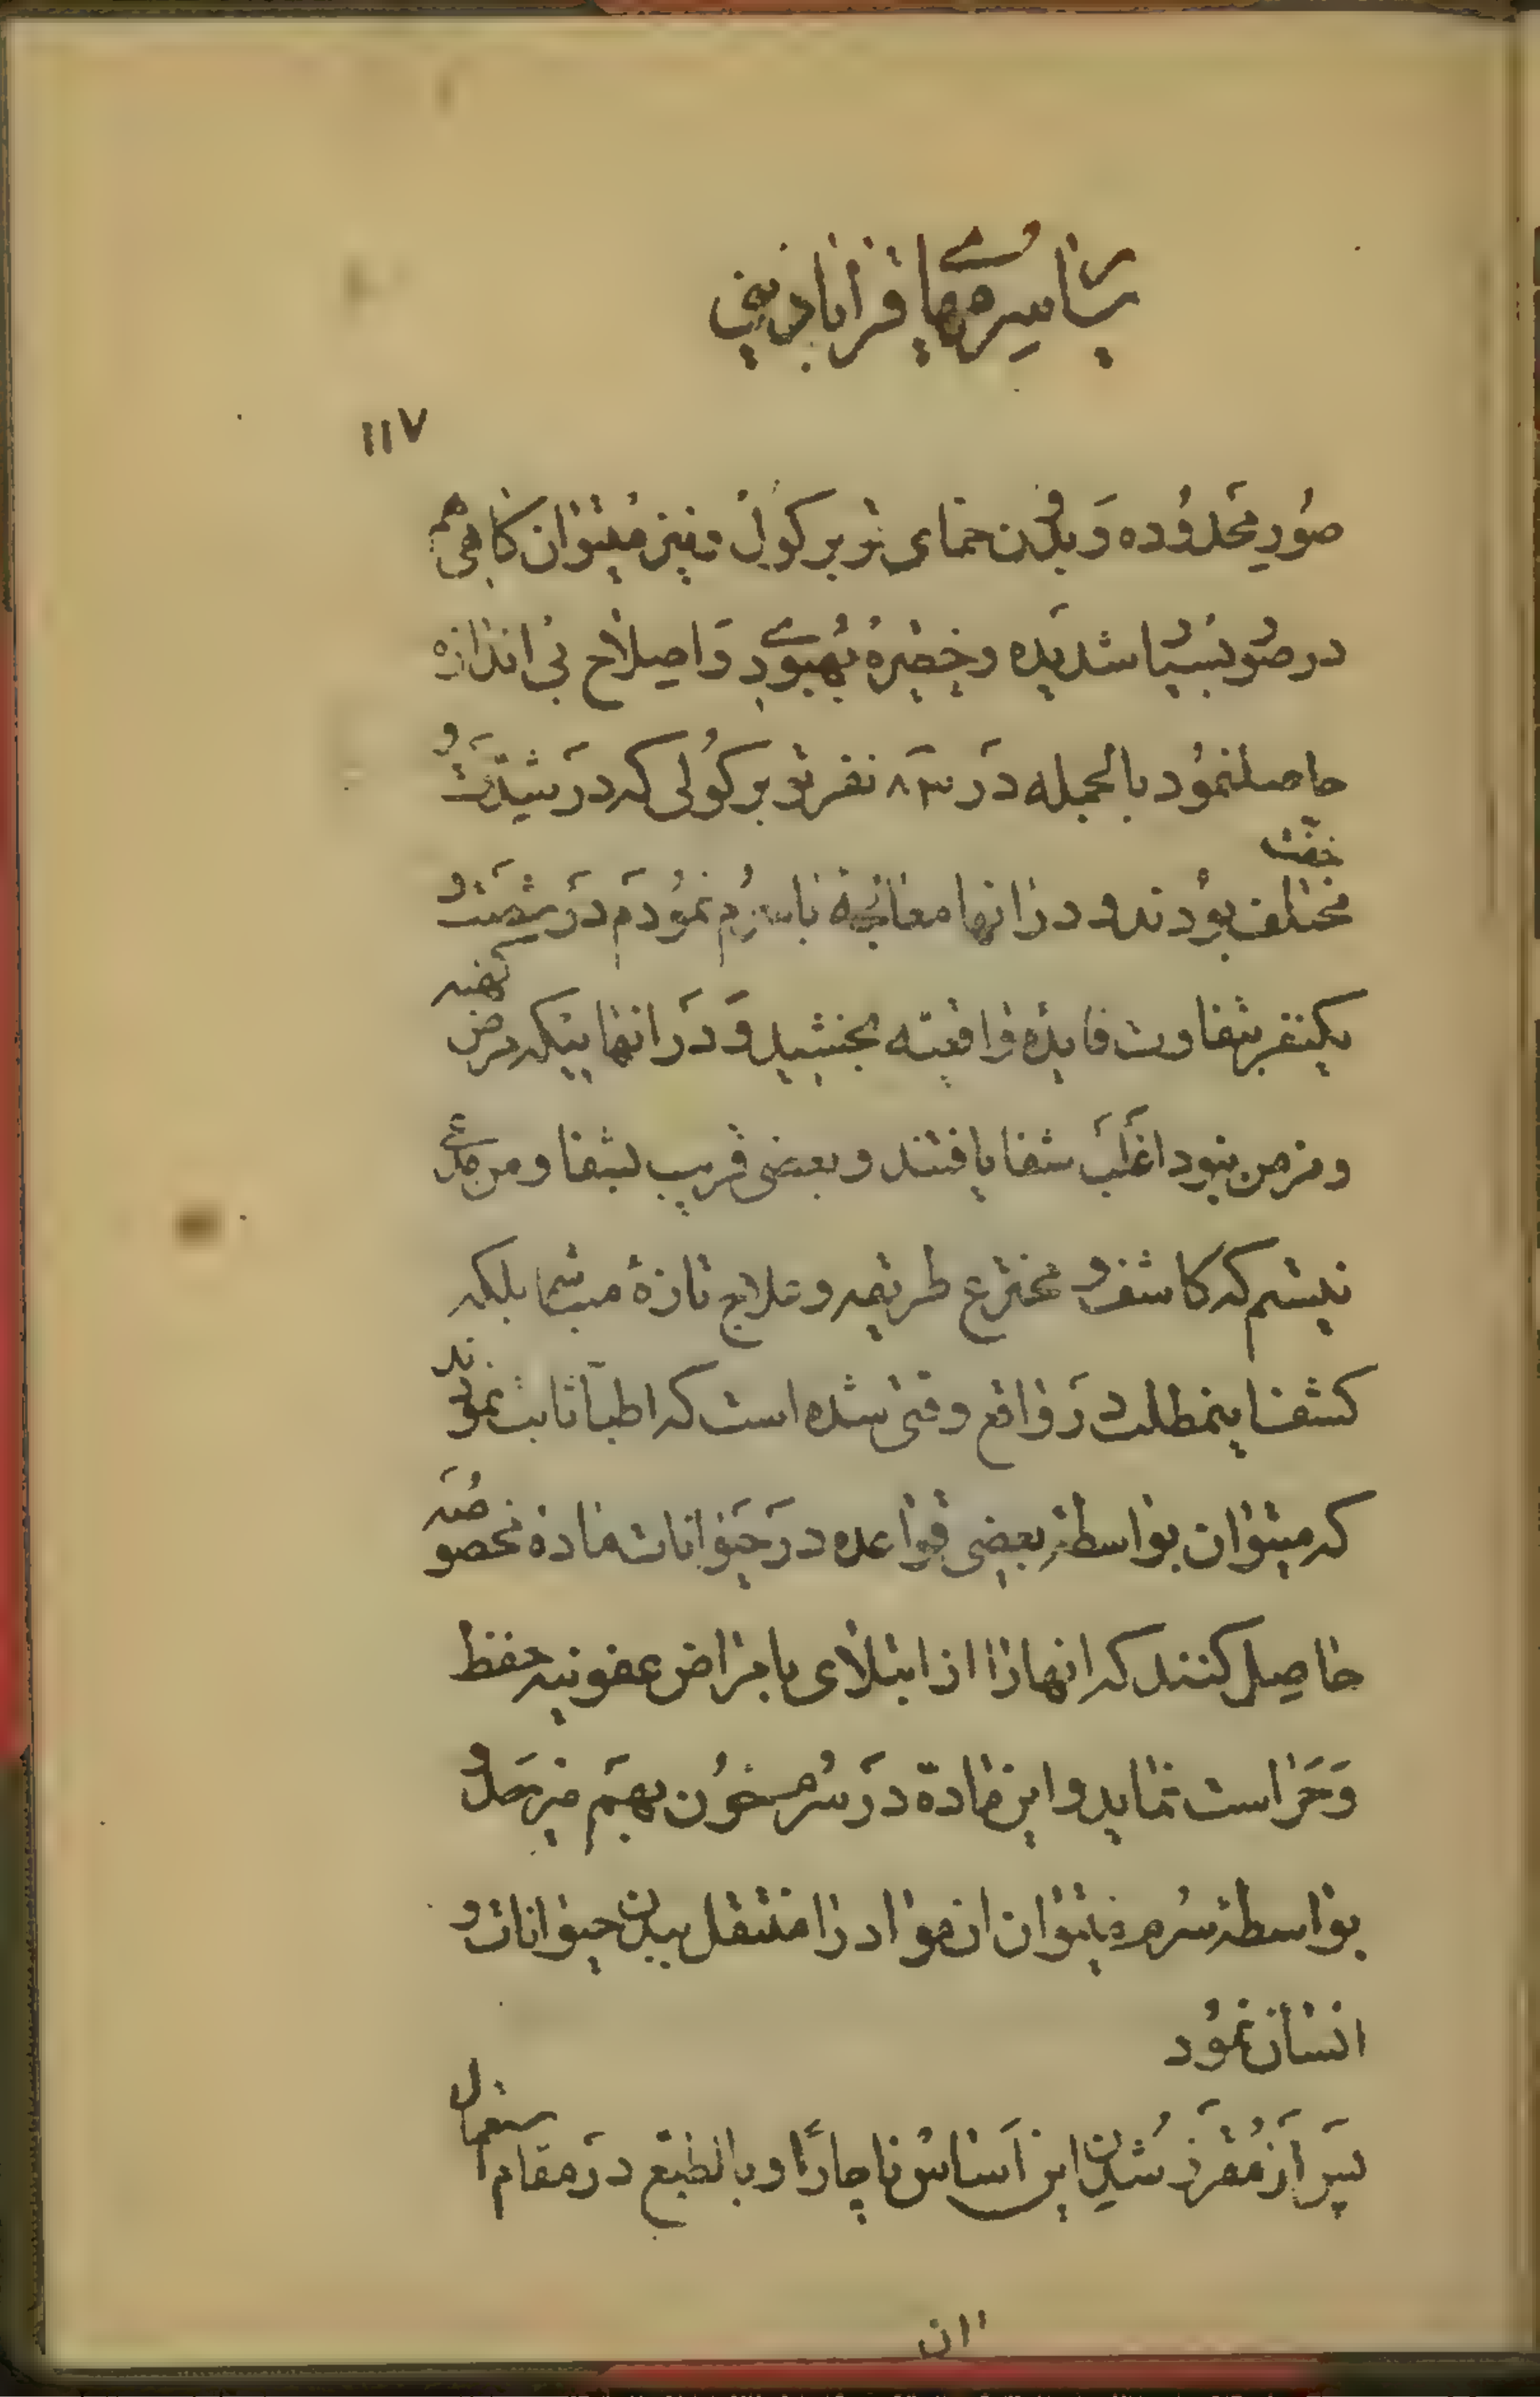 سرمهای قرابادینی
۱۱۷
صور محدوده و بدون حمای توبرکول و نیز میتوان گاهی هم
در صور بسیار شدیده و خطیره بهبودی و اصلاح بی اندازه
حاصل نمود بالجمله در ۸۳ نفر توبرکولی که در شدت و
خفت مختلف بودند و در انها معالجه با سرم نمودم در شصت و
یکنفر بتفاوت فایده واقعیه بخشید و در انهائیکه مرض کهنه
و مزمن نبود اغلب شفا یافتند و بعضی قریب بشفا و من مدعی
نیستم که کاشف و مخترع طریقه و علاج تازهٔ میباشم بلکه
کشف اینمطلب در واقع وقتی شده است که اطبا ثابت نمودند
که میتوان بواسطهٔ بعضی قواعده در حیوانات ماده مخصوصه
حاصل کنند که انها را از ابتلای بامراض عفونیه حفظ
و حراست نماید و این ماده در سرم خون بهم میرسد و
بواسطهٔ سرم میتوان ان مواد را منتقل ببدن حیوانات و
انسان نمود
پس از مقرر شدن این اساس ناچارا و بالطبع در مقام استعمال
ان